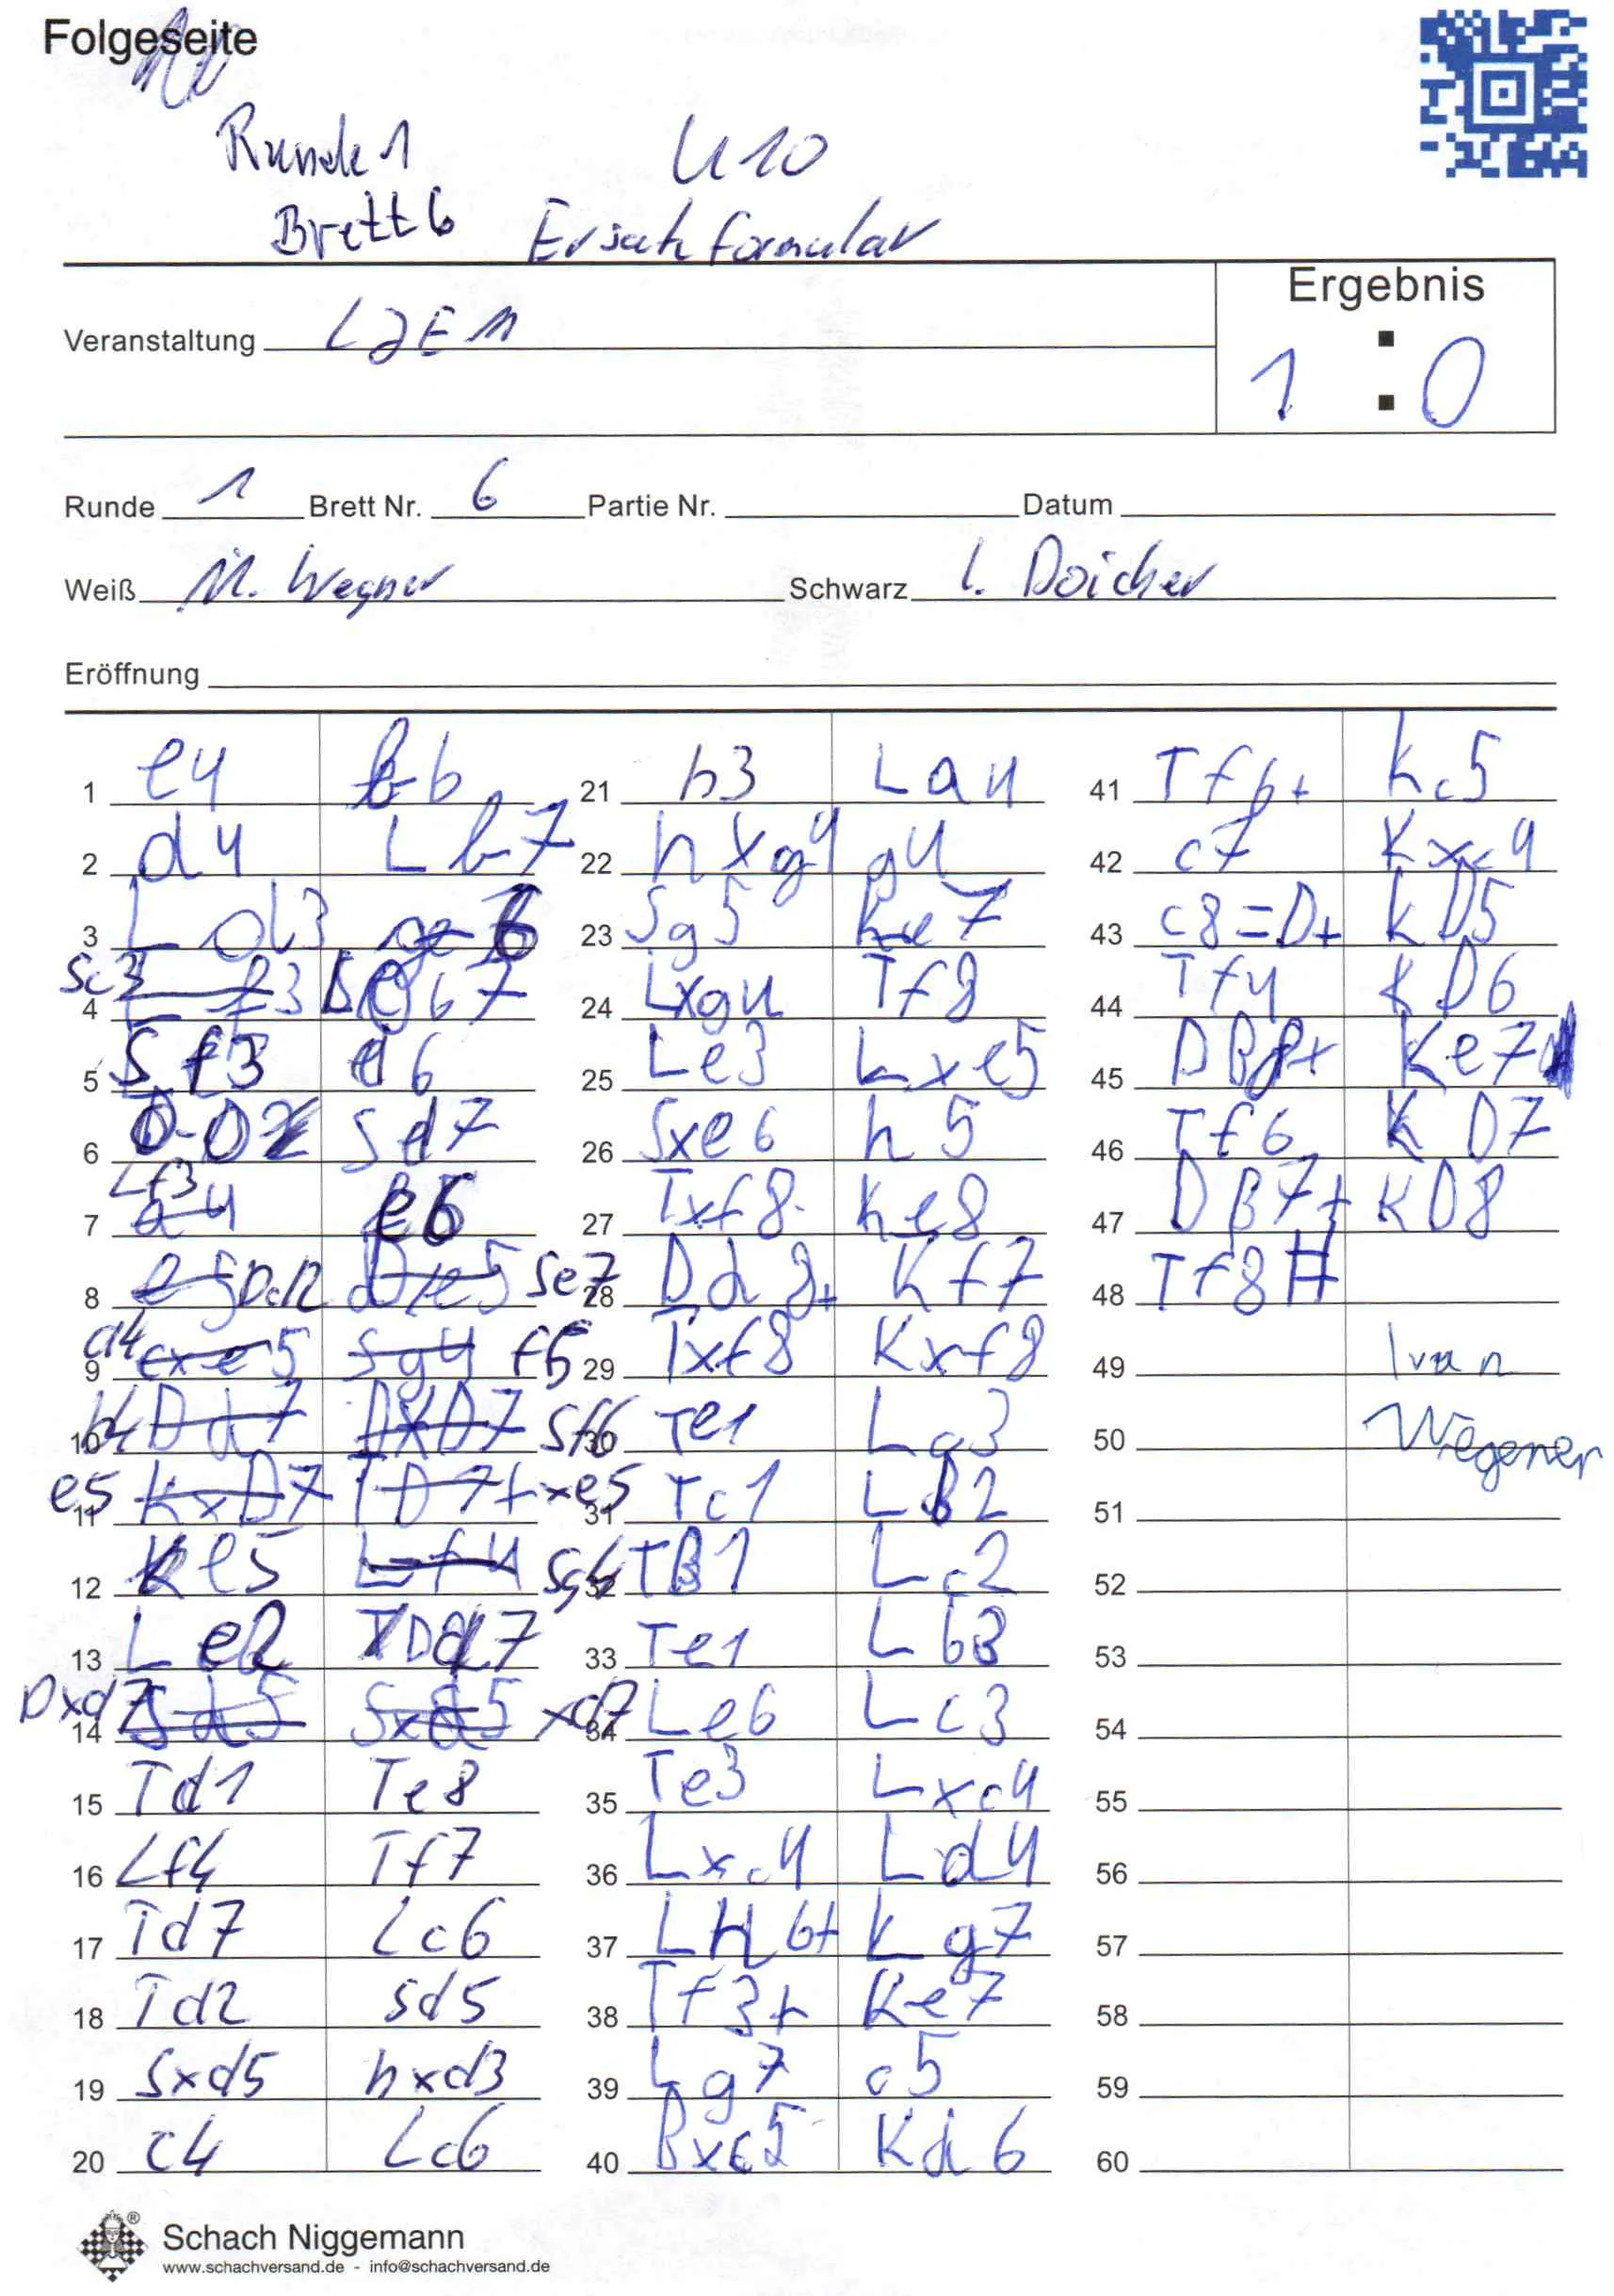 Folgeseite
Runde 1 U10
Brett 6 Ersatzformular
Ergebnis
Veranstaltung LJEM
1 : 0
Runde 1 Brett Nr. 6 Partie Nr. Datum
Weiß M. Wegner Schwarz l. Doicher
Eröffnung
1 e4 b6
2 d4 Lb7
3 Ld3 g6
4 Sc3 Lg7
5 Sf3 d6
6 0-0 Sd7
7 a4 Lf3 e6
8 Dd2 Se7
9 a4 f6
10 b4 Sf6
11 e5 xe5
12 e5 Sg4
13 Le2 Dd7
14 Dxd7 xd7
15 Td1 Te8
16 Lf4 Tf7
17 Td7 Lc6
18 Td2 Sd5
19 Sxd5 hxd3
20 c4 Lc6
21 h3 La4
22 hxg4 g4
23 Sg5 Ke7
24 Lxg4 Tf8
25 Le3 Lxe5
26 Sxe6 h5
27 Txf8 Ke8
28 Dd8+ Kf7
29 Txf8 Kxf8
30 Te1 La3
31 Tc1 LB2
32 TB1 Lc2
33 Te1 Lb3
34 Le6 Lc3
35 Te3 Lxc4
36 Lxc4 Ld4
37 LH6+ Kg7
38 Tf3+ Ke7
39 Lg7 c5
40 Bxc5 Kd6
41 Tf6+ Kc5
42 c7 Kxc4
43 c8=D+ KD5
44 Tf4 KD6
45 DB8+ Ke7
46 Tf6 KD7
47 DB7+ KD8
48 Tf8#
49 Ivan
50 Wegener
51
52
53
54
55
56
57
58
59
60
Schach Niggemann
www.schachversand.de - info@schachversand.de